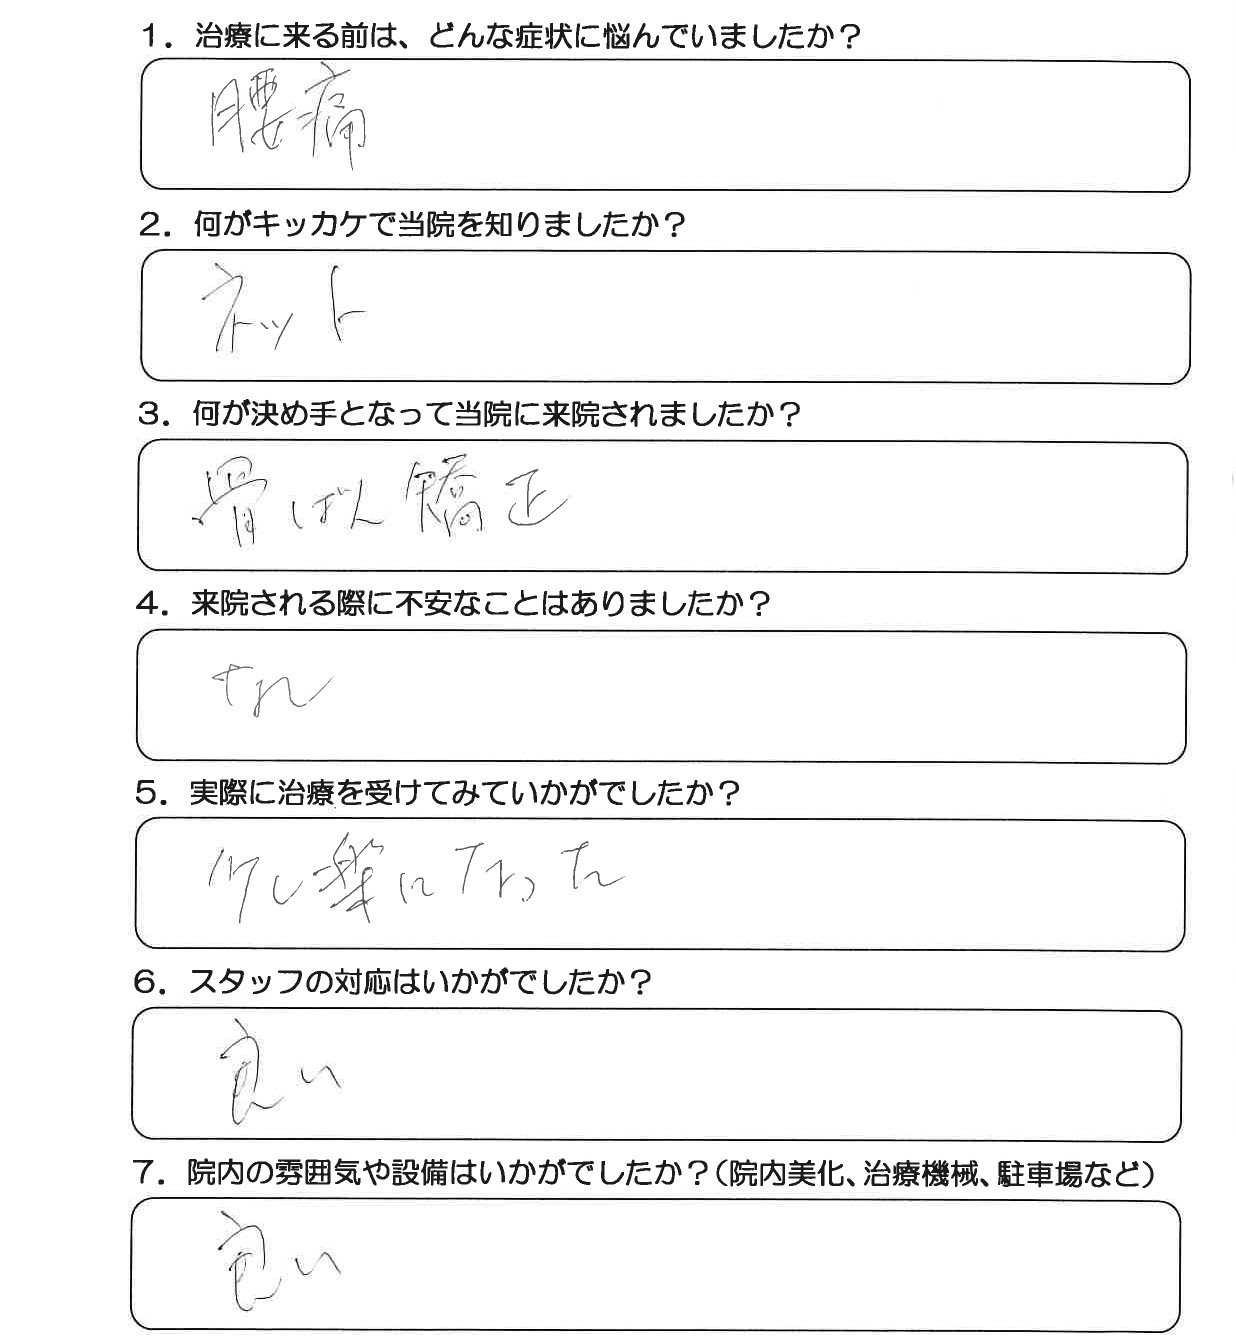 1．治療に来る前は、どんな症状に悩んでいましたか？
腰痛
2．何がキッカケで当院を知りましたか？
ネット
3．何が決め手となって当院に来院されましたか？
骨ばん矯正
4．来院される際に不安なことはありましたか？
なし
5．実際に治療を受けてみていかがでしたか？
少し楽になった
6．スタッフの対応はいかがでしたか？
良い
7．院内の雰囲気や設備はいかがでしたか？（院内美化、治療機械、駐車場など）
良い